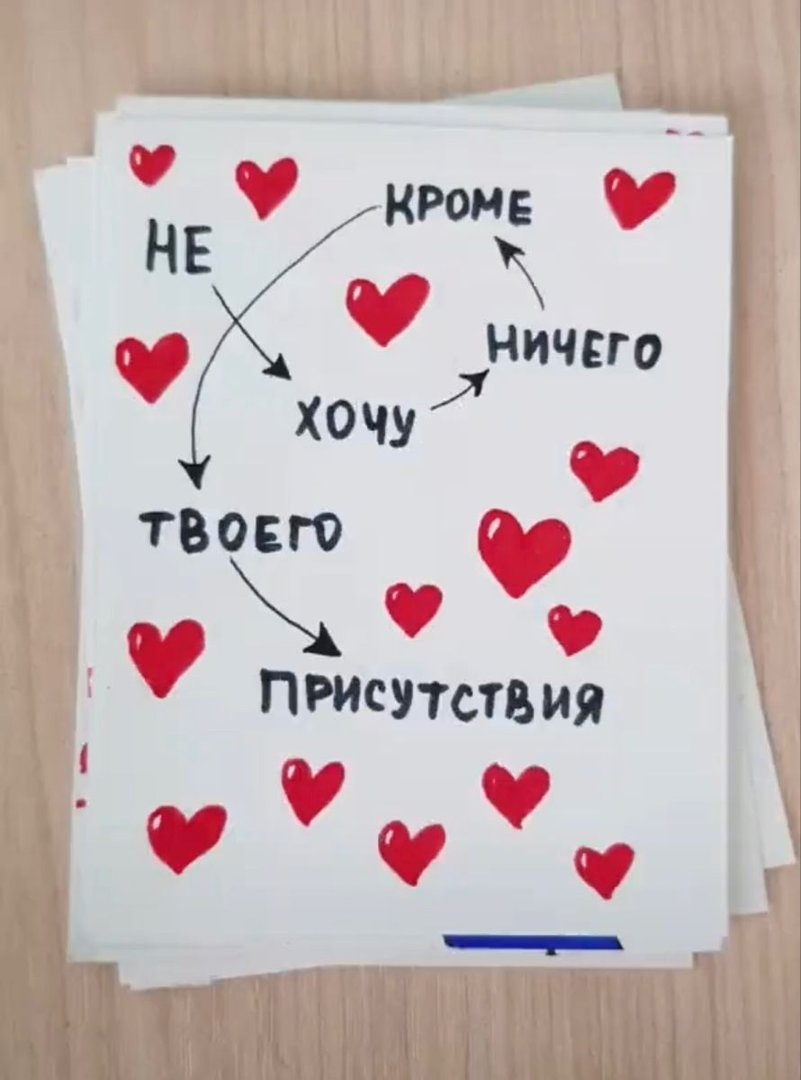 НЕ
ХОЧУ
НИЧЕГО
КРОМЕ
ТВОЕГО
ПРИСУТСТВИЯ